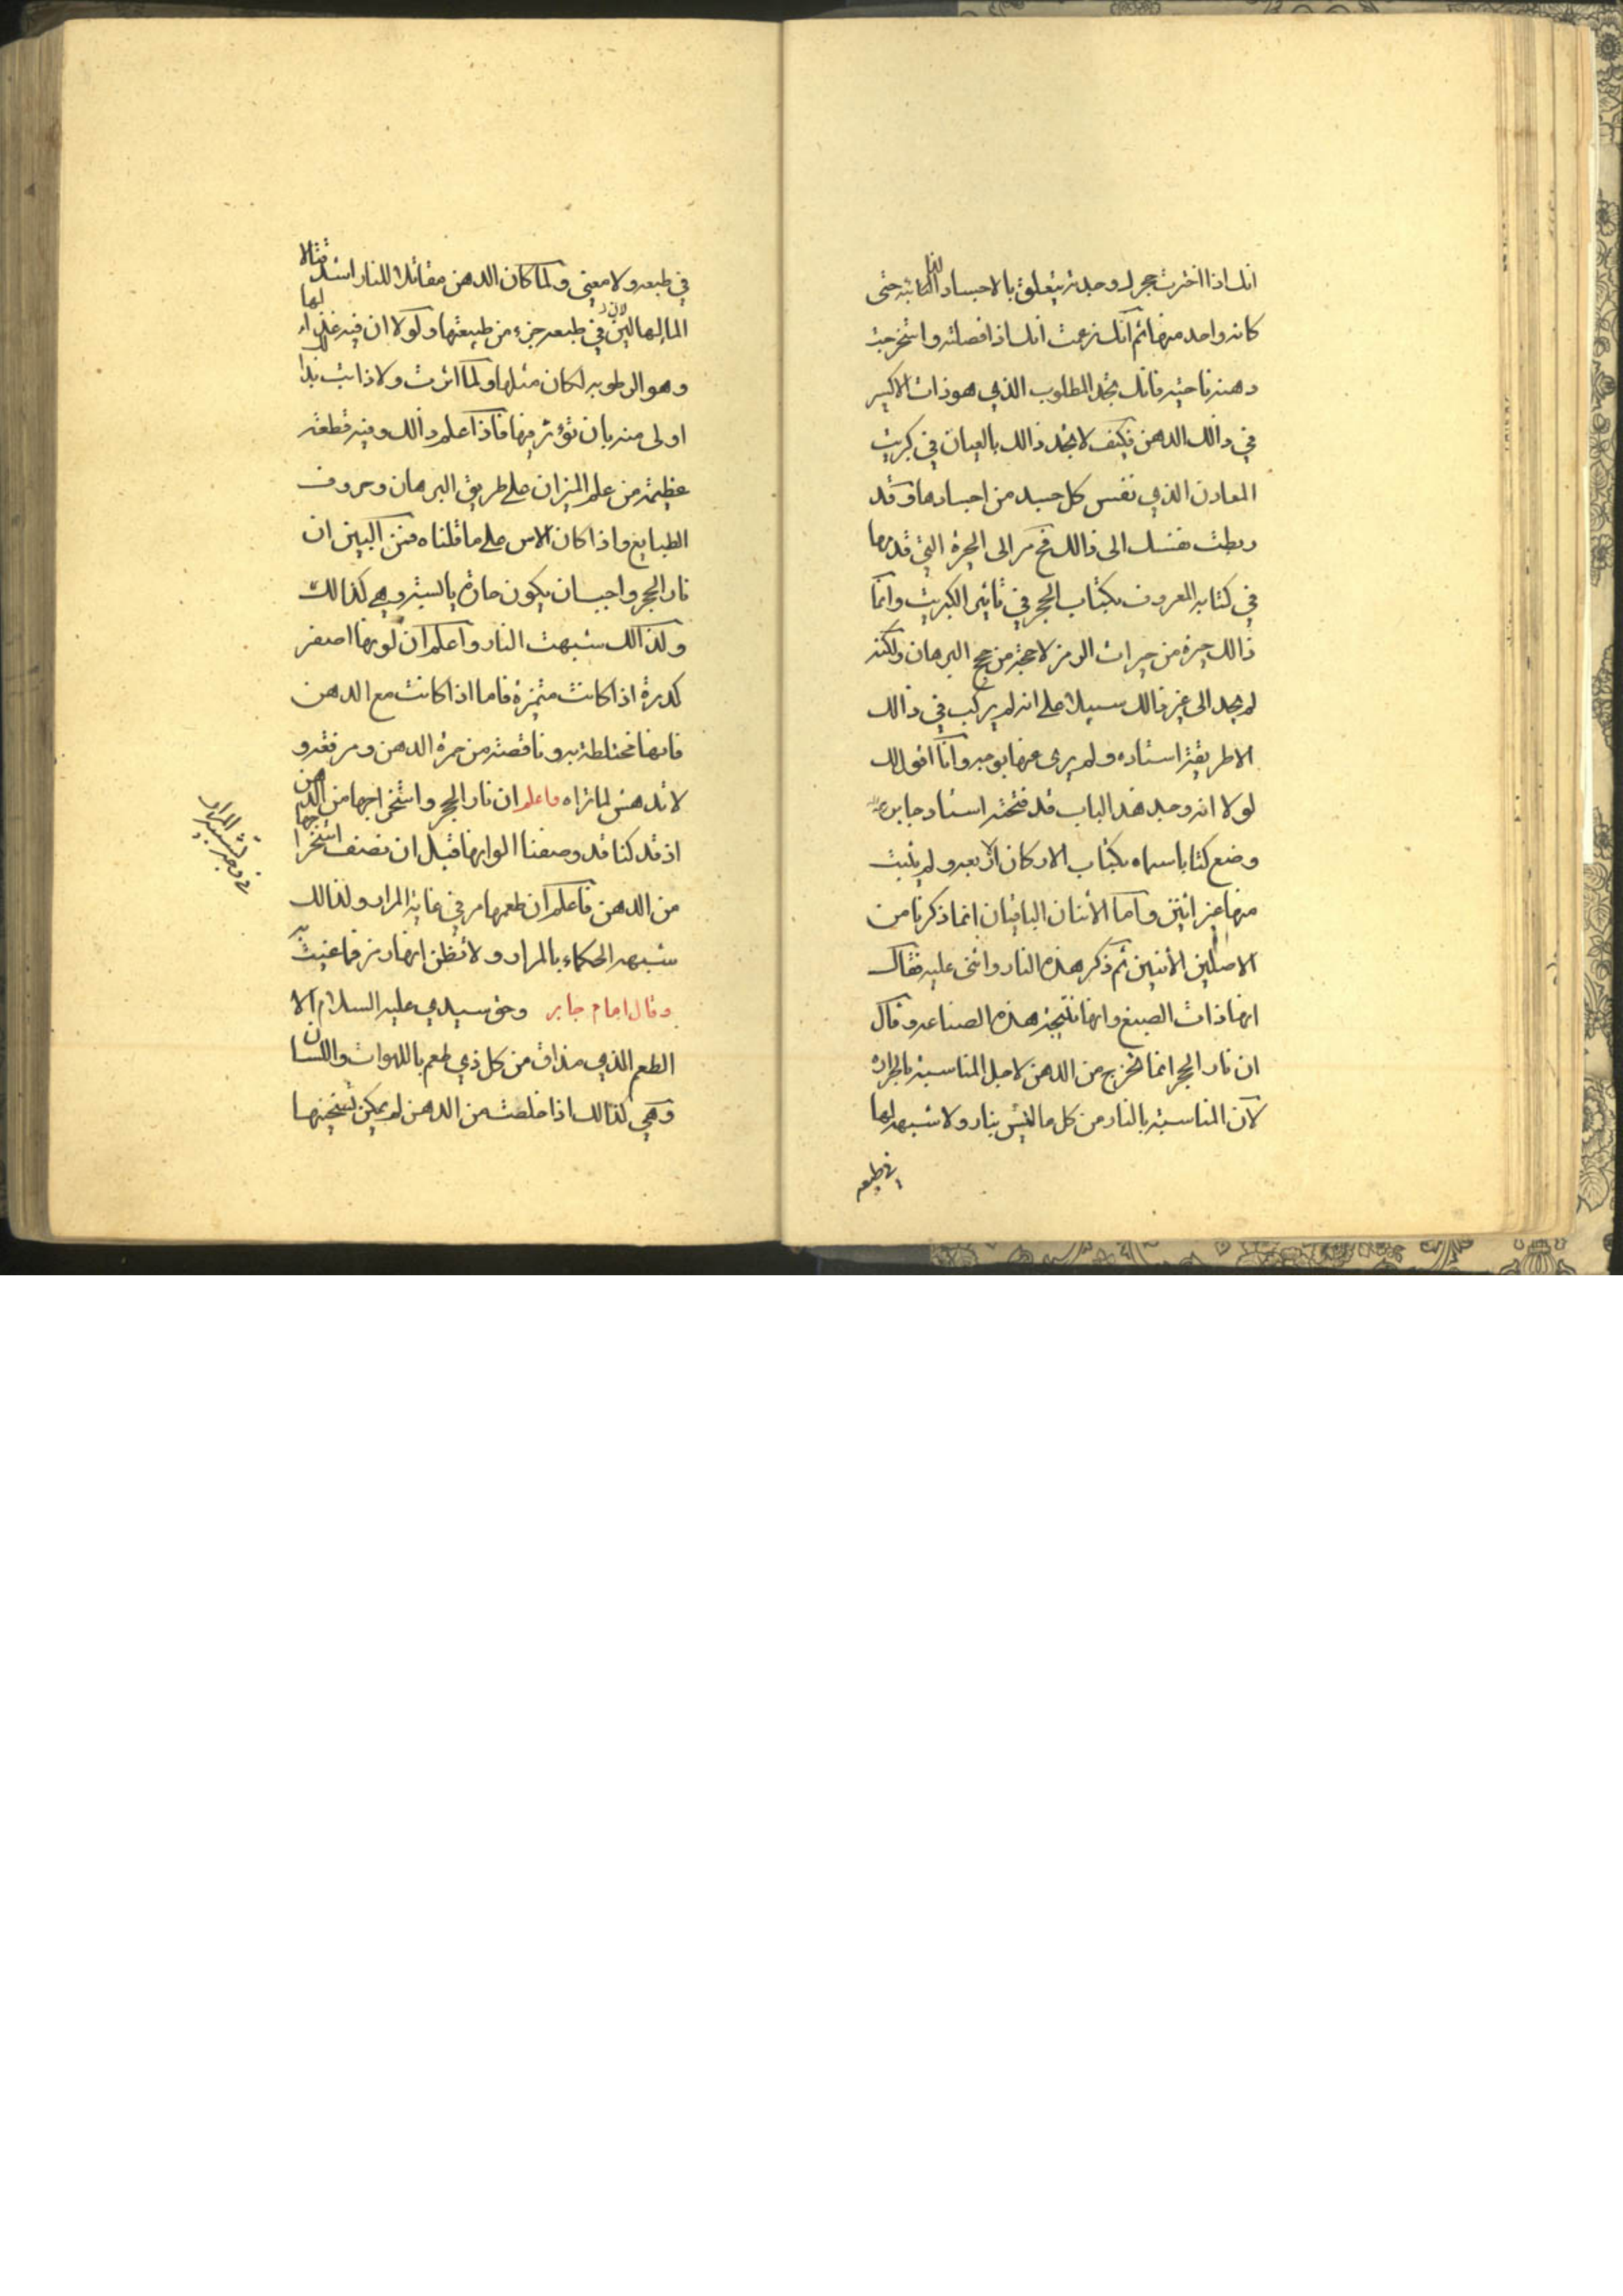 انك اذا اخترت حجرك وجدته يتعلق بالاجساد الذائبة حتى
كانه واحد منها ثم انك زعمت انك اذا فصلته واستخرجت
دهنه ناحيه فانك تجد المطلوب الذي هو ذات الاكسير
في ذالك الدهن فكيف لا تجد ذالك بالعيان في كبريت
المعادن الذي نفس كل جسد من اجسادها وقد
ربطت نفسك الى ذالك فخ مر الى الحيرة التي قد رها
في كتابه المعروف بكتاب الحجر في تاثير الكبريت وانما
ذالك حيرة من حيرات الرمز لا حجة من حجج البرهان ولكنه
لم يجد الى غير ذالك سبيلا على انه لم يركب في ذالك
الا طريقة استاده ولم يرى عنها بوجه وانا اقول لك
لولا انه وجد هذا الباب قد فتحه استاد جابر
وضع كتابا سماه بكتاب الاركان الاربعه ولم يثبت
منها غير اثنين واما الاثنان الباقيان انما ذكرنا من
الاصلين الاثنين ثم ذكر هذه النار واثنى عليه فقال
انها ذات الصبغ وانها نتيجة هذه الصناعه وقال
ان نار الحجر انما تخرج من الدهن لاجل المناسبة بالحرارة
لان المناسبة بالنار من كل ما ليس بنار ولا شبهه لها
في طبعه
في طبعه ولا معنى ولما كان الدهن مقاتلا للنار اشد قتالا
الماء لها لين لان في طبعه جزء من طبيعتها ولولا ان فيه غذاء لها
وهو الرطوبه لكان مثلها ولما اثرت ولا ذابت بل
اولى منه بان تؤثر فيها فاذا علم ذالك وفيه قطعة
عظيمة من علم الميزان على طريق البرهان وحروف
الطبايع واذا كان الاس على ما قلناه فمن البين ان
نار الحجر واجب ان يكون حارة يابسة وهي كذالك
ولذالك شبهت النار واعلم ان لونها اصفر
كدرة اذا كانت متميزة فاما اذا كانت مع الدهن
فانها مختلطة به وناقصة من حمرة الدهن ومرفقه و
لا تدهش لما تراه فاعلم ان نار الحجر واستخراجها من الدهن
اذ قد كنا قد وصفنا الوانها قبل ان نصف استخراجها
من الدهن فاعلم ان طعمها مر في غاية المرار ولذالك
شبهه الحكماء بالمرار ولا تظن انها رمز فما عنيت به
وقال امام جابر وحق سيدي عليه السلام الا
الطعم الذي مذاق من كل ذي طعم باللهوات واللسان
وهي كذالك اذا خلصت من الدهن لم يمكن تسخينها
في وجه تشبيه بالمرار